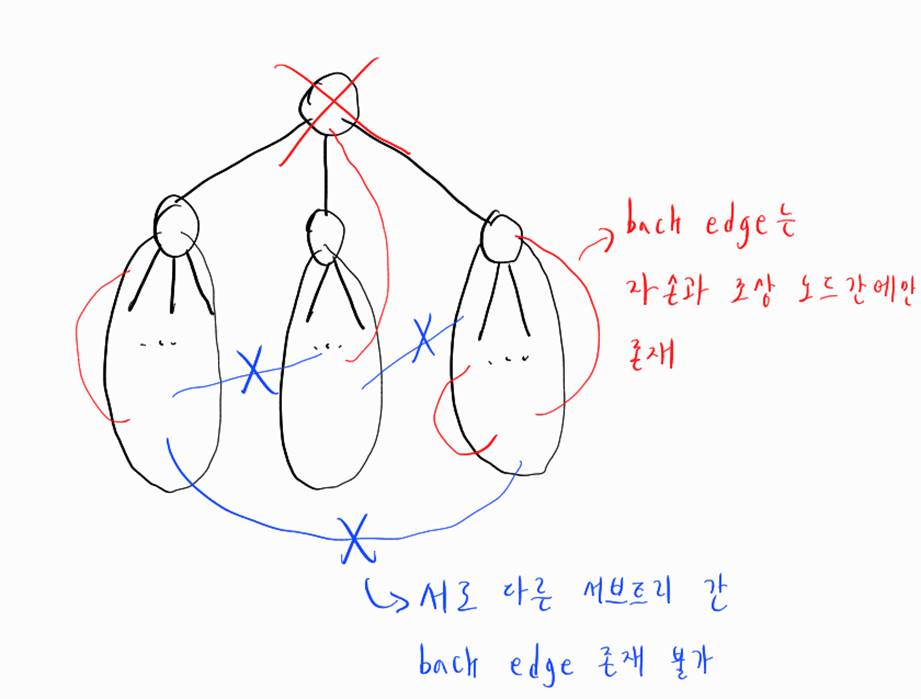 back edge는
자손과 조상 노드간에만
존재
서로 다른 서브트리 간
back edge 존재 불가